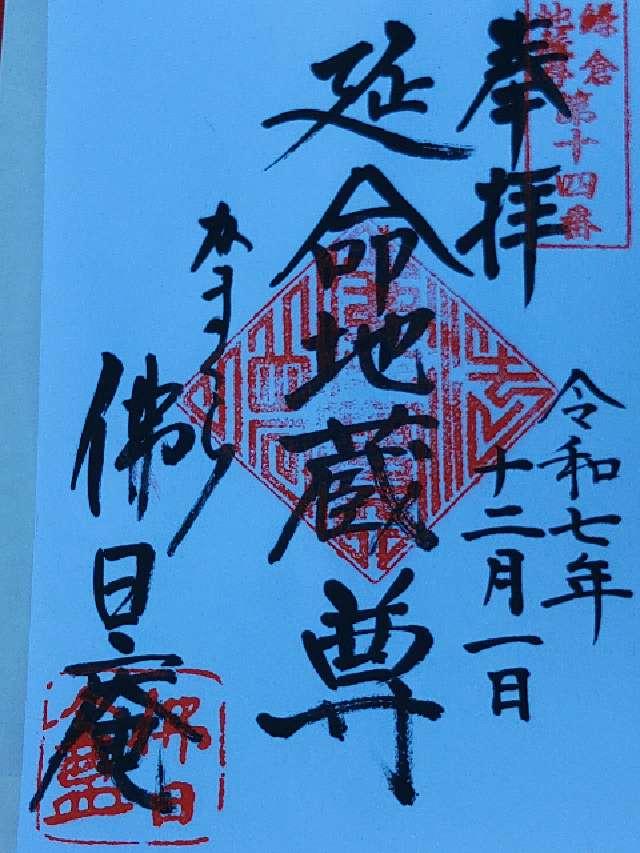 鎌倉
地蔵尊第十四番
奉拝
令和七年
十二月一日
延命地蔵尊
かまくら
佛日庵
佛日